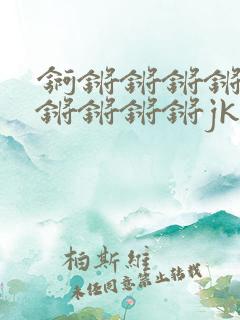 钶锵锵锵锵
锵锵锵锵jk
柏斯維
未经同意禁止转载